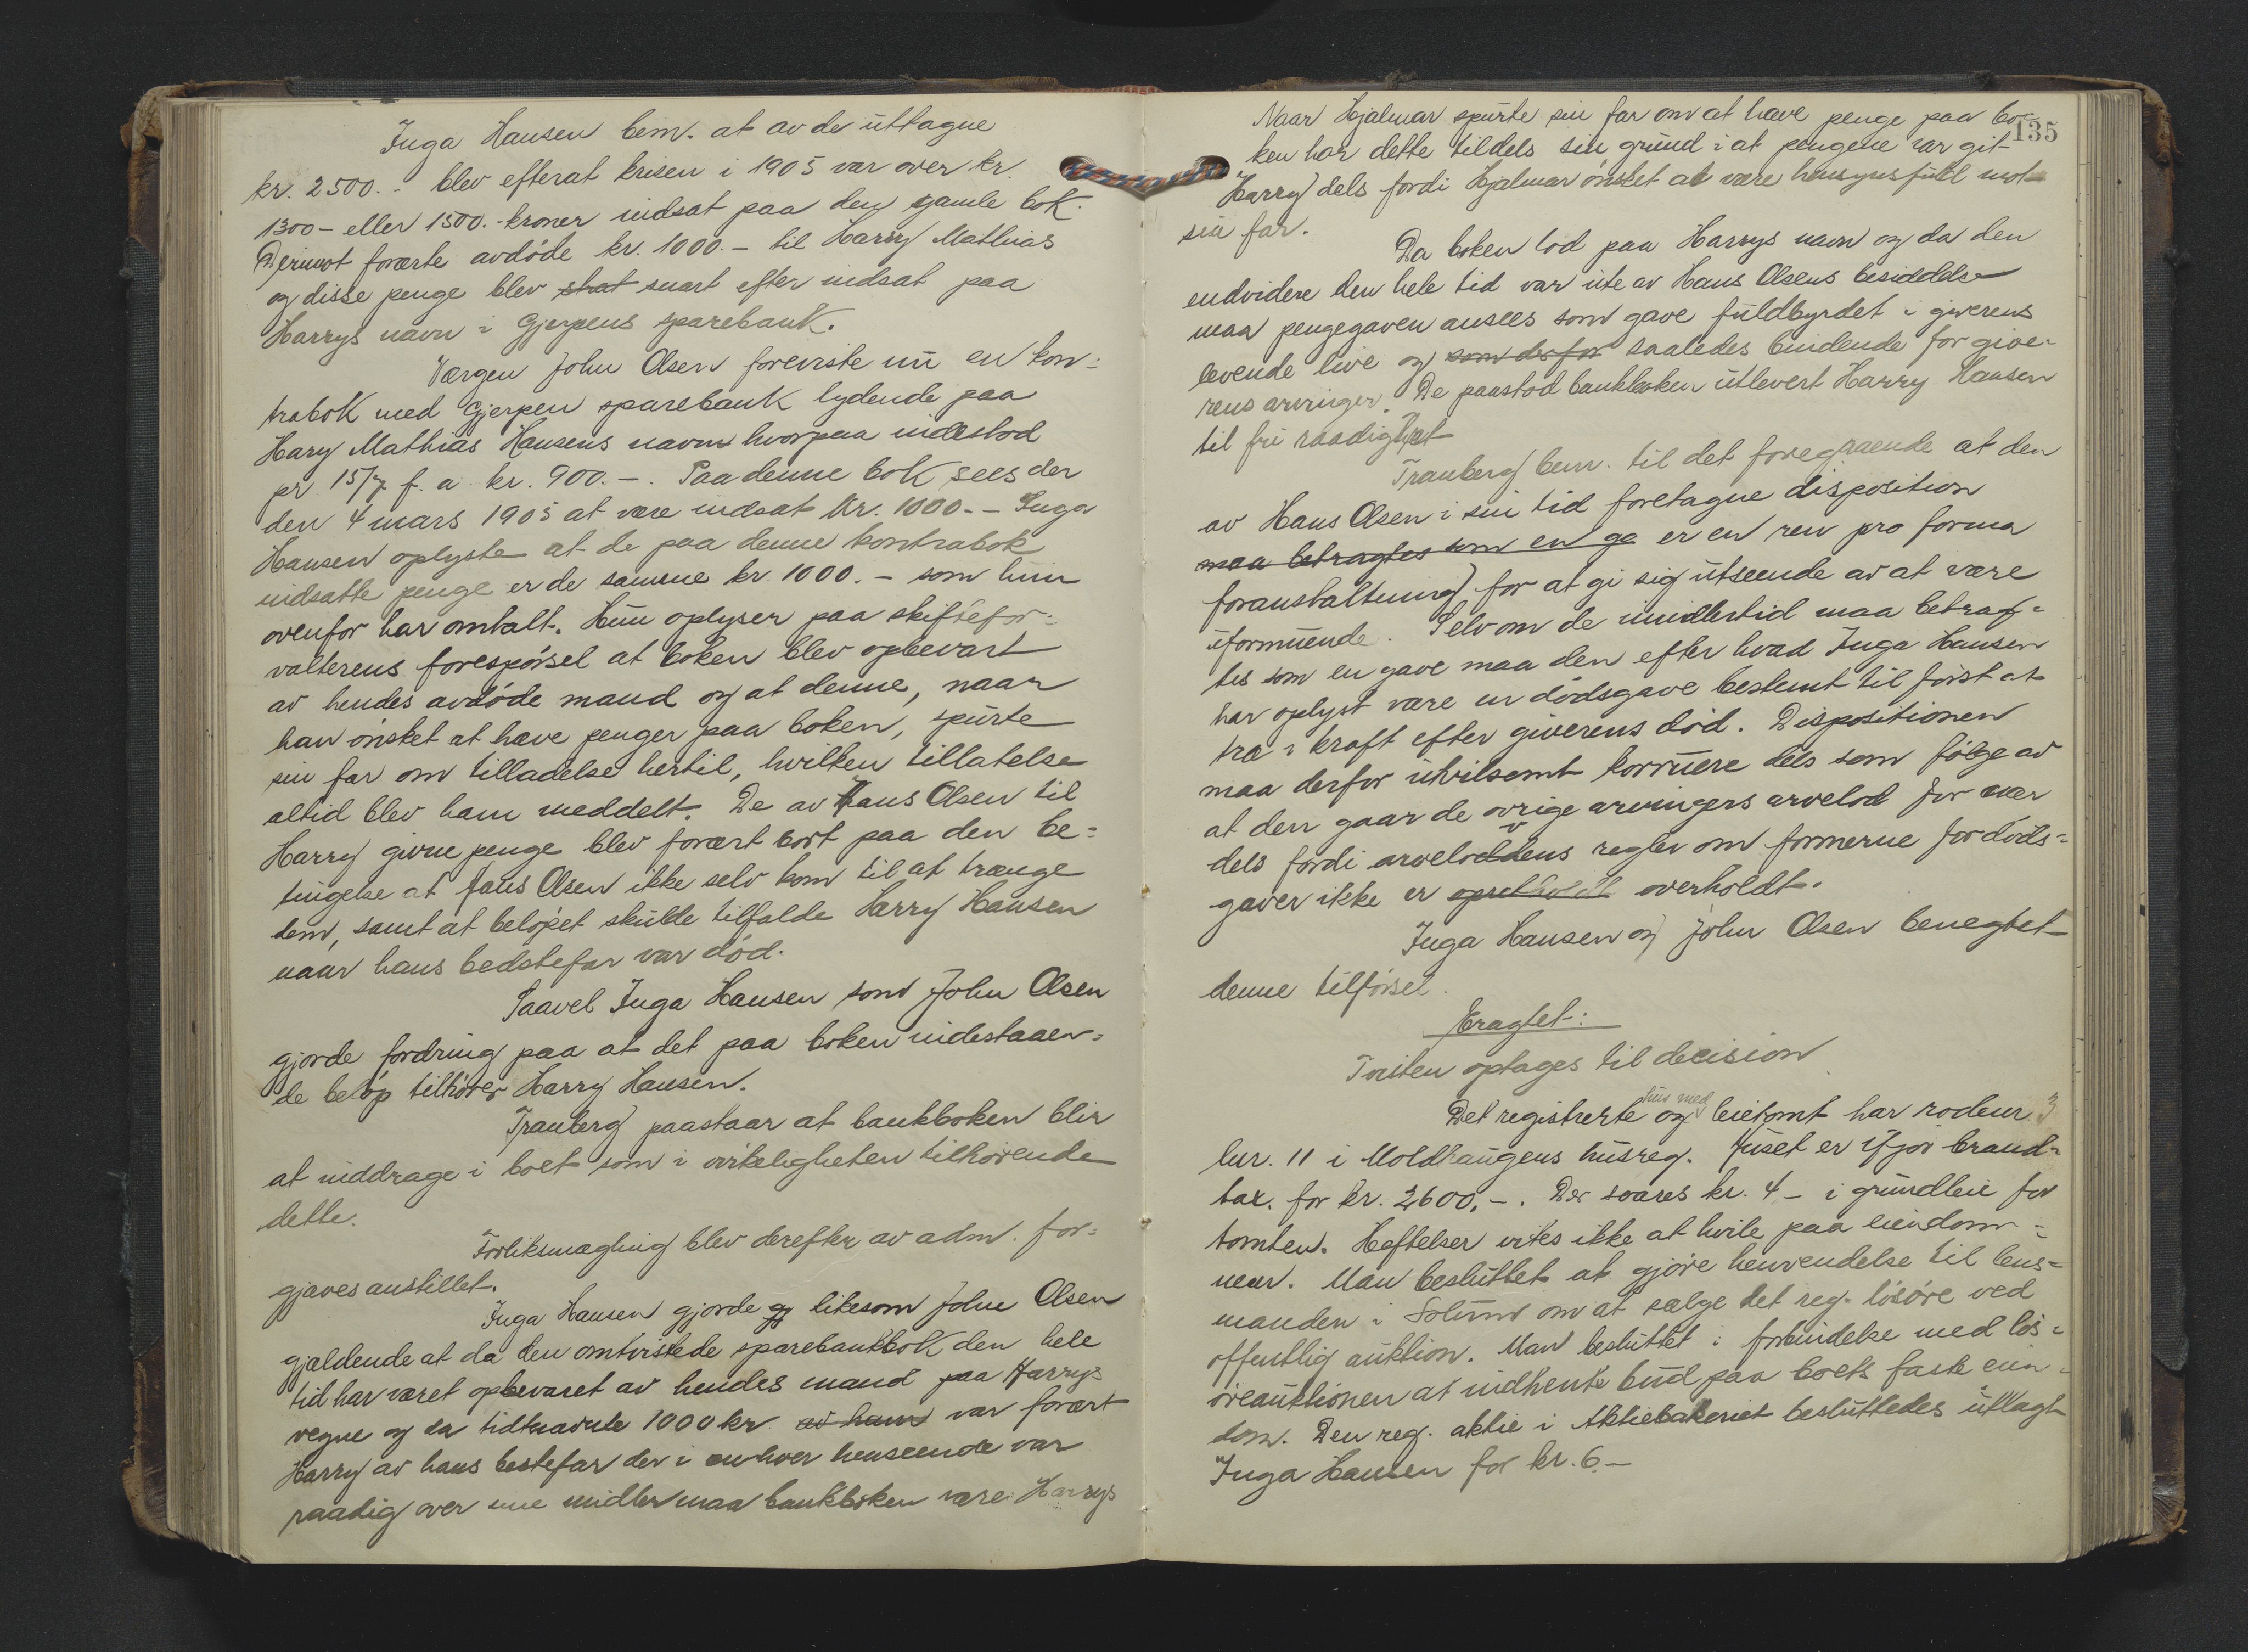 Inga Hansen bem. at av de uttagne
kr. 2500.- blev efterat krisen i 1905 var over kr.
1300 - eller 1500.- kroner indsat paa den gamle bok.
Derimot forærte avdøde kr. 1000.- til Harry Mathias
og disse penge blev strat snart efter indsat paa
Harrys navn i Gjerpens sparebank.
Værgen John Olsen foreviste nu en kon-
trabok med Gjerpen sparebank lydende paa
Hary Mathias Hansens navn hvorpaa indestod
pr 15/7 f. a kr. 900.-. Paa denne bok sees der
den 4 mars 1905 at være indsat kr. 1000.- Inga
Hansen oplyste at de paa denne kontrabok
indsatte penge er de samme kr. 1000.- som hun
ovenfor har omtalt. Hun oplyser paa skiftefor-
valterens forespørsel at boken blev opbevart
av hendes avdøde mand og at denne, naar
han ønsket at hæve penger paa boken, spurte
sin far om tilladelse hertil, hvilken tillatelse
altid blev ham meddelt. De av Hans Olsen til
Harry givne penge blev foræret bort paa den be-
tingelse at Hans Olsen ikke selv kom til at trænge
dem, samt at beløpet skulde tilfalde Harry Hansen
naar hans bedstefar var død.
Saavel Inga Hansen som John Olsen
gjorde fordring paa at det paa boken indestaaen-
de beløp tilhører Harry Hansen.
Tranberg paastaar at bankboken blir
at inddrage i boet som i virkeligheten tilhørende
dette.
Forliksmægling blev derefter av adm. for-
gjæves anstillet.
Inga Hansen gjorde gj likesom John Olsen
gjældende at da den omtvistede sparebankbok den hele
tid har været opbevaret av hendes mand paa Harrys
vegne og da tidtnævnte 1000 kr av ham var foræret
Harry av hans bestefar der i enhver henseende var
raadig over sine midler maa bankboken være Harrys
135
Naar Hjalmar spurte sin far om at hæve penge paa bo-
ken har dette tildels sin grund i at pengene var git
Harry dels fordi Hjalmar ønsket at være hensynsfuld mot
sin far.
Da boken lød paa Harrys navn og da den
endvidere den hele tid var ute av Hans Olsens besiddelse
maa pengegaven ansees som gave fuldbyrdet i giverens
levende live og som derfor saaledes bindende for give-
rens arvinger. De paastod bankboken utlevert Harry Hansen
til fri raadighet
Tranberg bem. til det foregaaende at den
av Hans Olsen i sin tid foretagne disposition
maa betragtes som en ga er en ren pro forma
foranstaltning for at gi sig utseende av at være
uformuende. Selv om de imidlertid maa betrag-
tes som en gave maa den efter hvad Inga Hansen
har oplyst være en dødsgave bestemt til først at
træ i kraft efter giverens død. Dispositionen
maa derfor utvilsomt korruere dels som følge av
at den gaar de øvrige arvingers arvelod for nær
dels fordi arvelovens regler om formerne for døds-
gaver ikke er opretholdt overholdt.
Inga Hansen og John Olsen benegtet
denne tilførsel.
Eragtet:
Tvisten optages til decision
Det registrerte hus med og leietomt har rodenr 3
lnr. 11 i Moldhaugens husreg. Huset er ifjor brand-
tax. for kr. 2600,-. Der svares kr. 4 - i grundleie for
tomten. Heftelser vites ikke at hvile paa eiendom-
men. Man besluttet at gjøre henvendelse til lens-
manden i Solum om at sælge det reg. løsøre ved
offentlig auktion. Man besluttet i forbindelse med løs-
øreauktionen at indhente bud paa boets faste eien-
dom. Den reg. aktie i Aktiebakeriet besluttedes utlagt
Inga Hansen for kr. 6.-